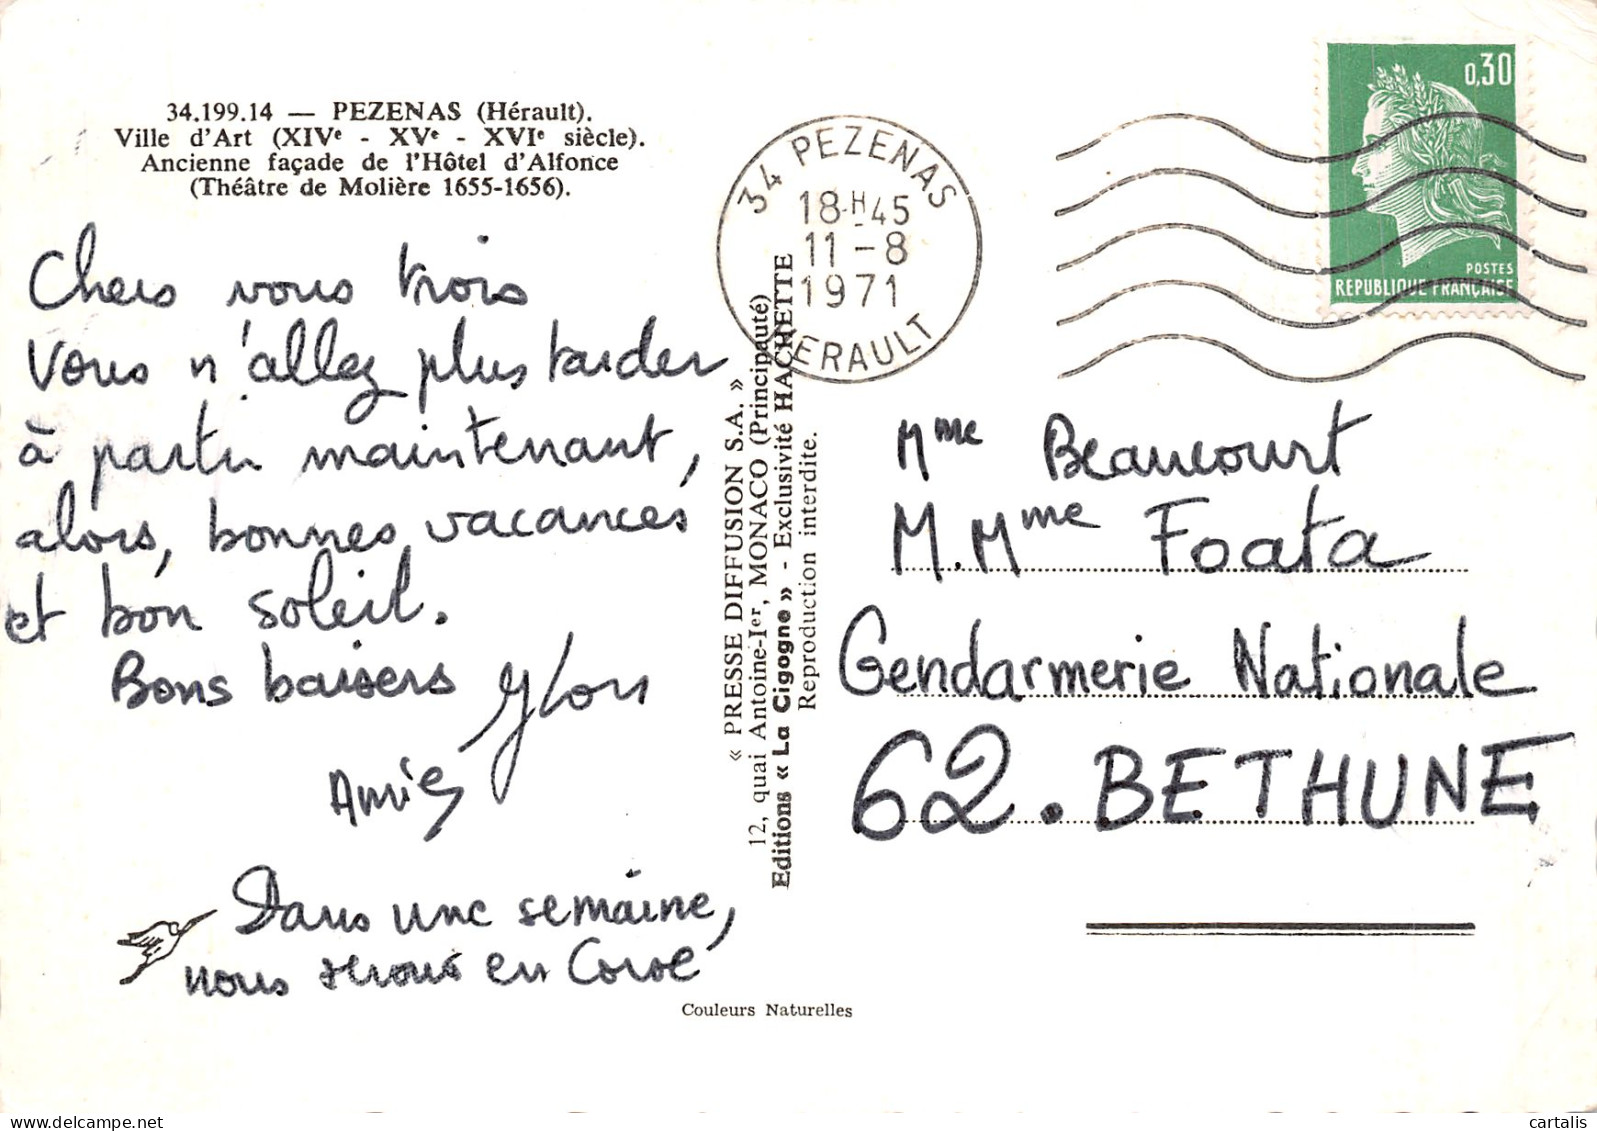 34.199.14 — PEZENAS (Hérault).
Ville d'Art (XIVe - XVe - XVIe siècle).
Ancienne façade de l'Hôtel d'Alfonce
(Théâtre de Molière 1655-1656).
Chers vous trois
Vous n'allez plus tarder
à partir maintenant,
alors, bonnes vacances
et bon soleil.
Bons baisers
Dans une semaine,
nous serons en Corse
« PRESSE DIFFUSION S.A. »
12, quai Antoine-Ier, MONACO (Principauté)
Editions « La Cigogne » - Exclusivité HACHETTE
Reproduction interdite.
Couleurs Naturelles
34 PEZENAS
18H45
11-8
1971
HERAULT
0,30
POSTES
REPUBLIQUE FRANÇAISE
Mme Beaucourt
M. Mme Foata
Gendarmerie Nationale
62. BETHUNE
cartalis